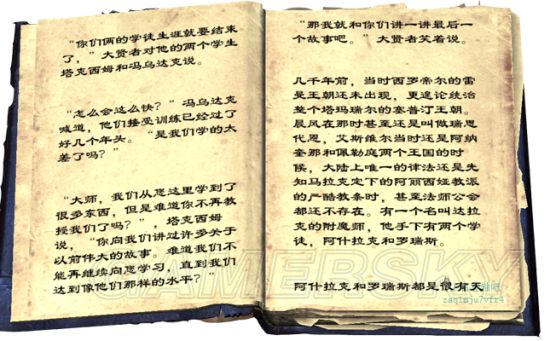 “你们俩的学徒生涯就要结束
了，”大贤者对他的两个学生
塔克西姆和冯乌达克说。
“怎么会这么快？”冯乌达克
喊道，他们接受训练已经过了
好几个年头。“是我们学的太
差了吗？”
“大师，我们从您这里学到了
很多东西，但是难道你不再教
授我们了吗？”，塔克西姆
说，“你向我们讲过许多关于
以前伟大的故事。难道我们不
能再继续向您学习，直到我们
达到像他们那样的水平？”
“那我就和你们讲一讲最后一
个故事吧。”大贤者笑着说。
几千年前，当时西罗帝尔的雷
曼王朝还未出现，更遑论统治
整个塔玛瑞尔的塞普汀王朝。
晨风在那时甚至还是叫做瑞思
代恩，艾斯维尔当时还是阿纳
奎那和佩勒庭两个王国的时
候，大陆上唯一的律法还是先
知马拉克定下的阿丽西娅教派
的严酷教条时，甚至法师公会
都还不存在。有一个名叫达拉
克的附魔师，他手下有两个学
徒，阿什拉克和罗瑞斯。
阿什拉克和罗瑞斯都是很有天
GAMERSKY
zaqimju7vfr4